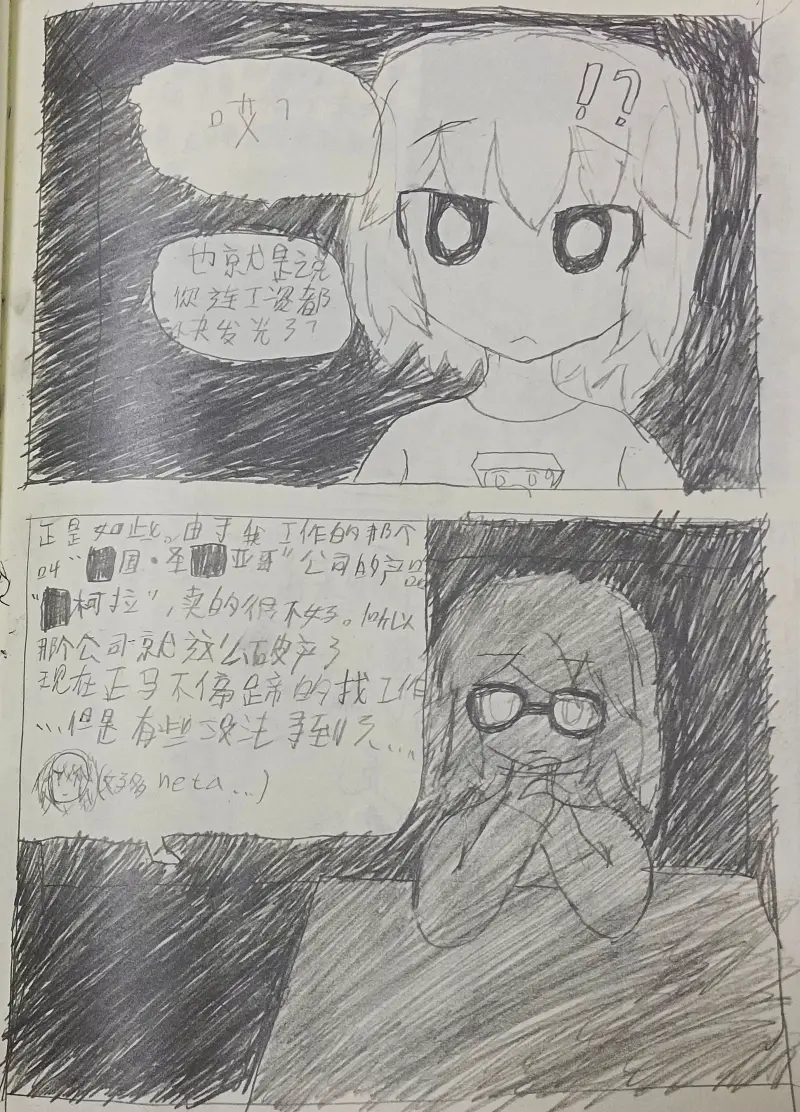 哎?
!?
也就是说
你连工资都
快发光了?
正是如此。由于我工作的那个
叫"█国·圣██亚哥"公司的产品
"█柯拉",卖的很不好。所以
那个公司就这么破产了
现在正马不停蹄的找工作
...但是有些没法找到了...
(好多neta...)